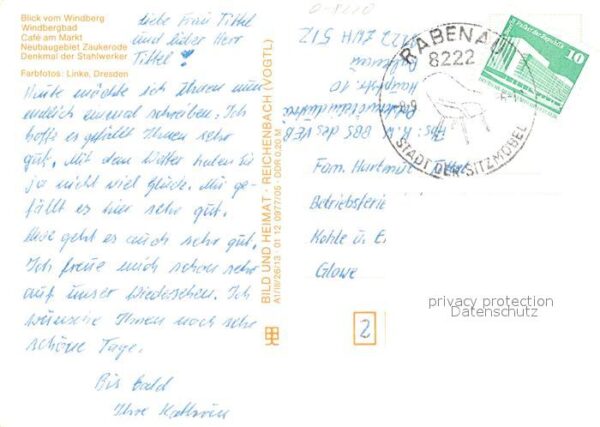 Blick vom Windberg
Windbergbad
Café am Markt
Neubaugebiet Zaukerode
Denkmal der Stahlwerker
Farbfotos: Linke, Dresden
Liebe Frau Tittel
und lieber Herr
Tittel!
Heute möchte ich Ihnen nun
endlich einmal schreiben. Ich
hoffe es gefällt Ihnen sehr
gut. Mit dem Wetter haben Sie
ja nicht viel Glück. Mir ge-
fällt es hier sehr gut.
geht es auch sehr gut.
Ich freue mich schon sehr
auf unser Wiedersehen. Ich
wünsche Ihnen noch sehr
schöne Tage.
Bis bald
Ihre Kathrin
BILD UND HEIMAT · REICHENBACH (VOGTL)
A1/III/26/13 · 01 12 0977/05 · DDR 0,20 M
Abs: K. W. BBS des VEB
Hauptstr. 10
Rabenau
8222
RABENAU
8222
STADT DER SITZMÖBEL
Palast der Republik
10
Fam. Hartmut Tittel
Betriebsferie
Kohle u. E
Glowe
privacy protection
Datenschutz
2